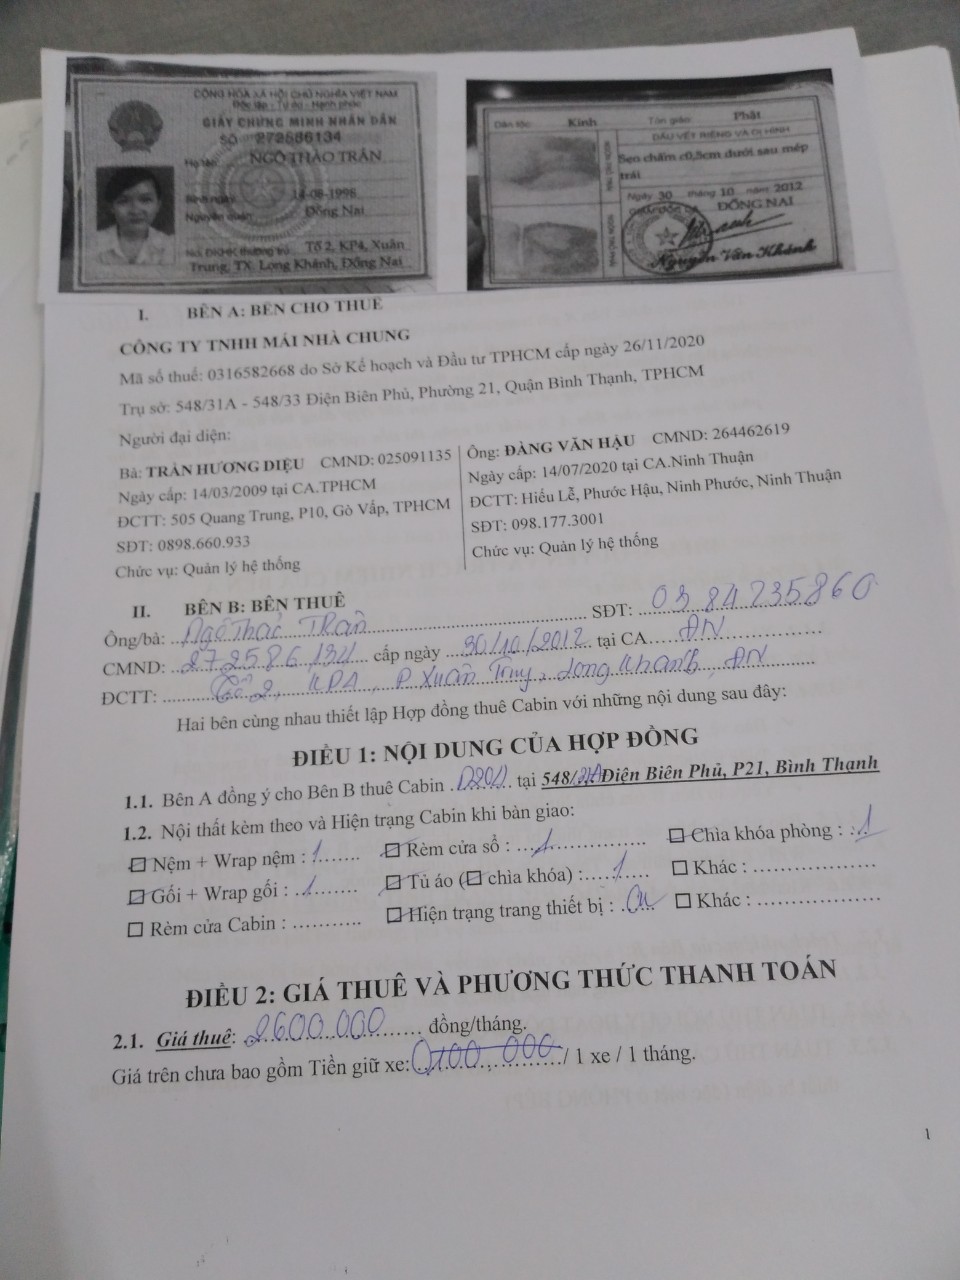 CỘNG HÒA XÃ HỘI CHỦ NGHĨA VIỆT NAM
Độc lập - Tự do - Hạnh phúc
GIẤY CHỨNG MINH NHÂN DÂN
SỐ 272586134
Họ tên NGÔ THẢO TRÂN
Sinh ngày 14-08-1996
Nguyên quán Đồng Nai
Nơi ĐKHK thường trú Tổ 2, KP4, Xuân
Trung, TX. Long Khánh, Đồng Nai
Dân tộc: Kinh Tôn giáo: Phật
DẤU VẾT RIÊNG VÀ DỊ HÌNH
Sẹo chấm c0,5cm dưới sau mép
trái
Ngày 30 tháng 10 năm 2012
ĐỒNG NAI
Nguyễn Văn Khánh
I. BÊN A: BÊN CHO THUÊ
CÔNG TY TNHH MÁI NHÀ CHUNG
Mã số thuế: 0316582668 do Sở Kế hoạch và Đầu tư TPHCM cấp ngày 26/11/2020
Trụ sở: 548/31A - 548/33 Điện Biên Phủ, Phường 21, Quận Bình Thạnh, TPHCM
Người đại diện:
Bà: TRẦN HƯƠNG DIỆU CMND: 025091135
Ngày cấp: 14/03/2009 tại CA.TPHCM
ĐCTT: 505 Quang Trung, P10, Gò Vấp, TPHCM
SĐT: 0898.660.933
Chức vụ: Quản lý hệ thống
Ông: ĐÀNG VĂN HẬU CMND: 264462619
Ngày cấp: 14/07/2020 tại CA.Ninh Thuận
ĐCTT: Hiếu Lễ, Phước Hậu, Ninh Phước, Ninh Thuận
SĐT: 098.177.3001
Chức vụ: Quản lý hệ thống
II. BÊN B: BÊN THUÊ
Ông/bà: Ngô Thảo Trân SĐT: 0384235860
CMND: 272586134 cấp ngày 30/10/2012 tại CA ĐN
ĐCTT: Tổ 2, KP4, P Xuân Trung, Long Khánh, ĐN
Hai bên cùng nhau thiết lập Hợp đồng thuê Cabin với những nội dung sau đây:
ĐIỀU 1: NỘI DUNG CỦA HỢP ĐỒNG
1.1. Bên A đồng ý cho Bên B thuê Cabin tại 548/31A Điện Biên Phủ, P21, Bình Thạnh
1.2. Nội thất kèm theo và Hiện trạng Cabin khi bàn giao:
Nệm + Wrap nệm : 1 Rèm cửa sổ : 1 Chìa khóa phòng : 1
Gối + Wrap gối : 1 Tủ áo (chìa khóa) : 1 Khác :
Rèm cửa Cabin : Hiện trạng trang thiết bị : Khác :
ĐIỀU 2: GIÁ THUÊ VÀ PHƯƠNG THỨC THANH TOÁN
2.1. Giá thuê: 2600.000 đồng/tháng.
Giá trên chưa bao gồm Tiền giữ xe: 100.000 / 1 xe / 1 tháng.
1